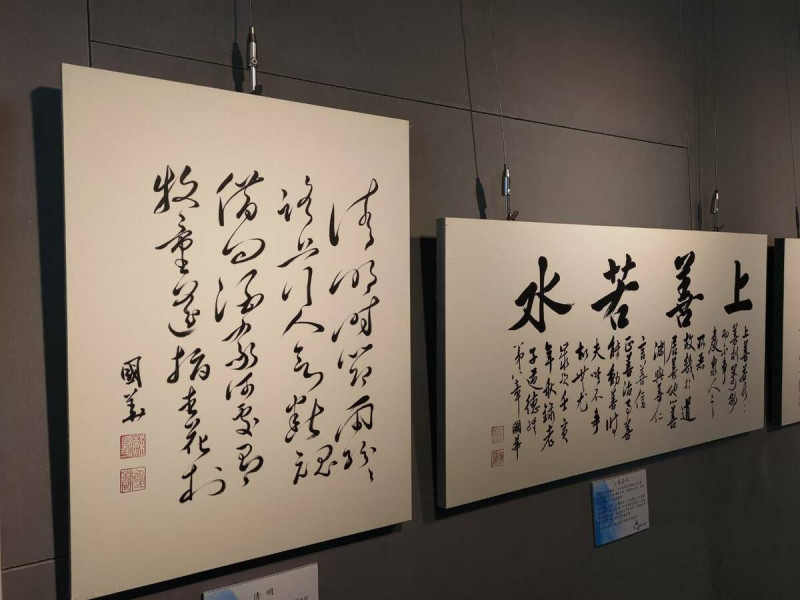 清明時節雨紛紛
路上行人欲斷魂
借問酒家何處有
牧童遙指杏花村
國華
上善若水
上善若水水
善利萬物
而不爭
處眾人之
所惡
故幾於道
居善地心善
淵與善仁
言善信
正善治事善
能動善時
夫唯不爭
故無尤
歲次
年秋錄老
子道德經
第八章 國華
清 明
上善若水